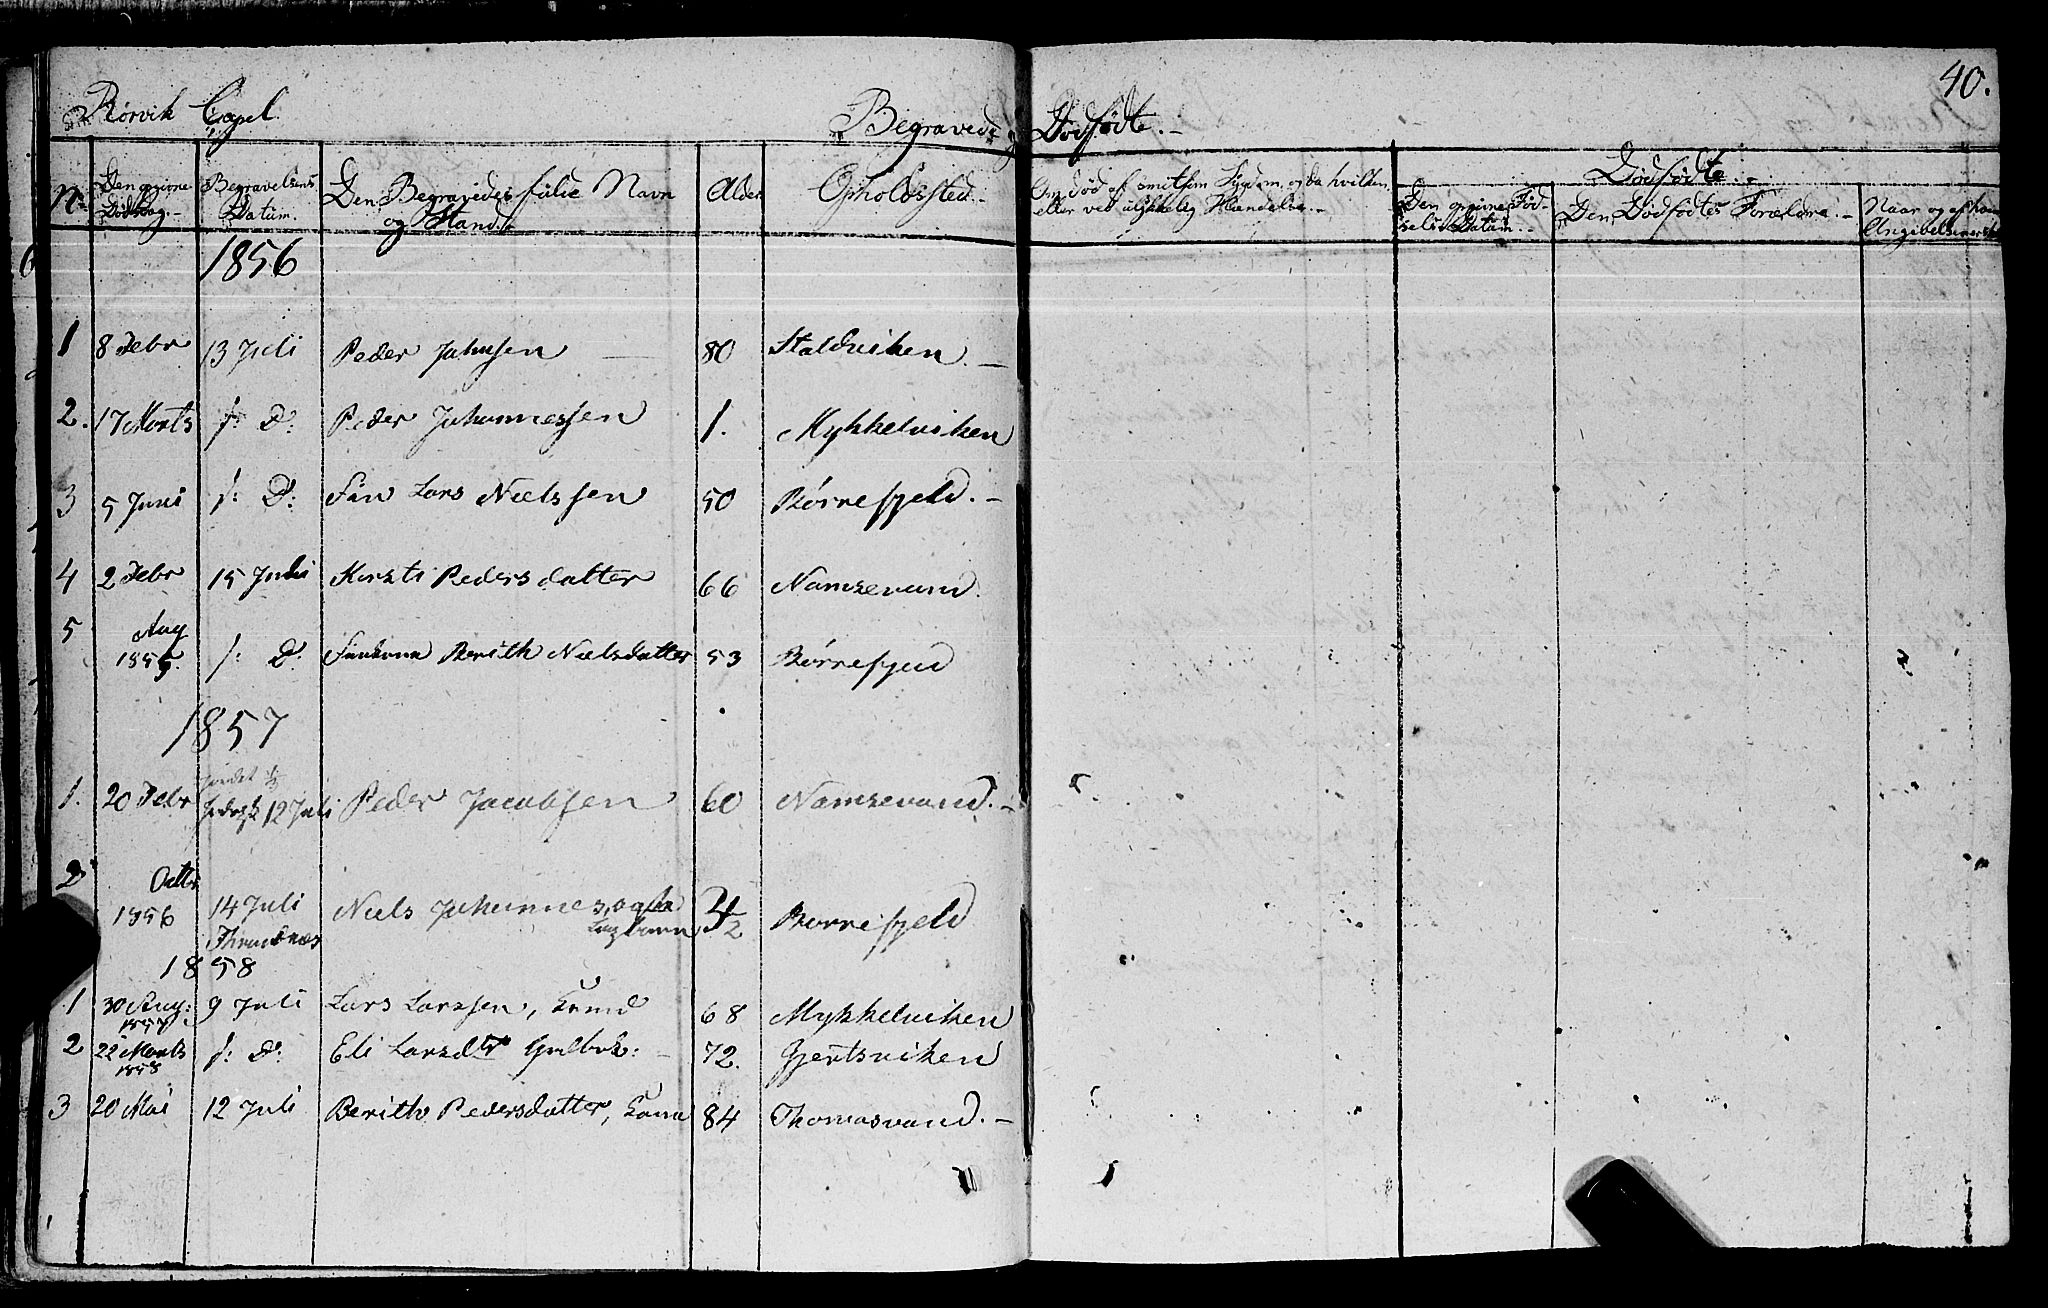 40.
Rørvik Capel.
Begravede og Dødfødte.
No. Den opgivne Dødsdag. Begravelsens Datum. Den Begravedes fulde Navn og Stand. Alder Opholdssted. Om død af smitsom Sygdom, og da hvilken, eller ved ulykkelig Hændelse. Dødfødte. Den opgivne Fødselsdatum. Den Dødfødtes Forældre. Naar og af hvem
1856
1 8 Febr 13 Juli Peder Johnsen 80 Staldviken.
2. 17 Marts s: D: Peder Johannessen 1. Mykkelviken
3 5 Juni s: D: Fin Lars Nielssen 50 Børrefjeld.
4 2 Febr 15 Juli Kirsti Pedersdatter 66 Namsevand.
5 Aug 1855. s: D: Finkona Berith Nielsdatter 53 Børrefjeld
1857
1. 20 Febr 12 Juli Peder Jacobsen 60 Namsevand.
2 Octbr 1856 14 Juli Niels Johannes Børrefjeld
1858
1 30 Aug: 1857 9 Juli Lars Larssen, 68 Mykkelviken
2 22 Marts 1858 s: D: Eli Larsdtr 72. Gjertsviken
3 20 Mai 12 Juli Berith Pedersdatter, Kona 84 Thomasvand.